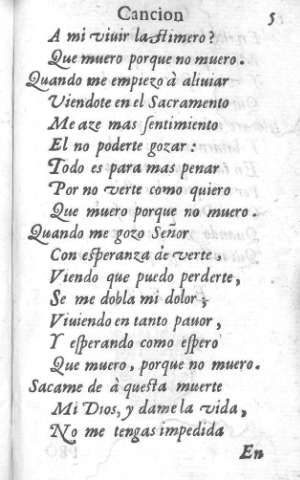 Cancion 5
A mi vivir lastimero?
Que muero porque no muero.
Quando me empiezo à aliuiar
Viendote en el Sacramento
Me aze mas sentimiento
El no poderte gozar:
Todo es para mas penar
Por no verte como quiero
Que muero porque no muero.
Quando me gozo Señor
Con esperanza de verte,
Viendo que puedo perderte,
Se me dobla mi dolor;
Viuiendo en tanto pauor,
Y esperando como espero
Que muero, porque no muero.
Sacame de à questa muerte
Mi Dios, y dame la vida,
No me tengas impedida
En